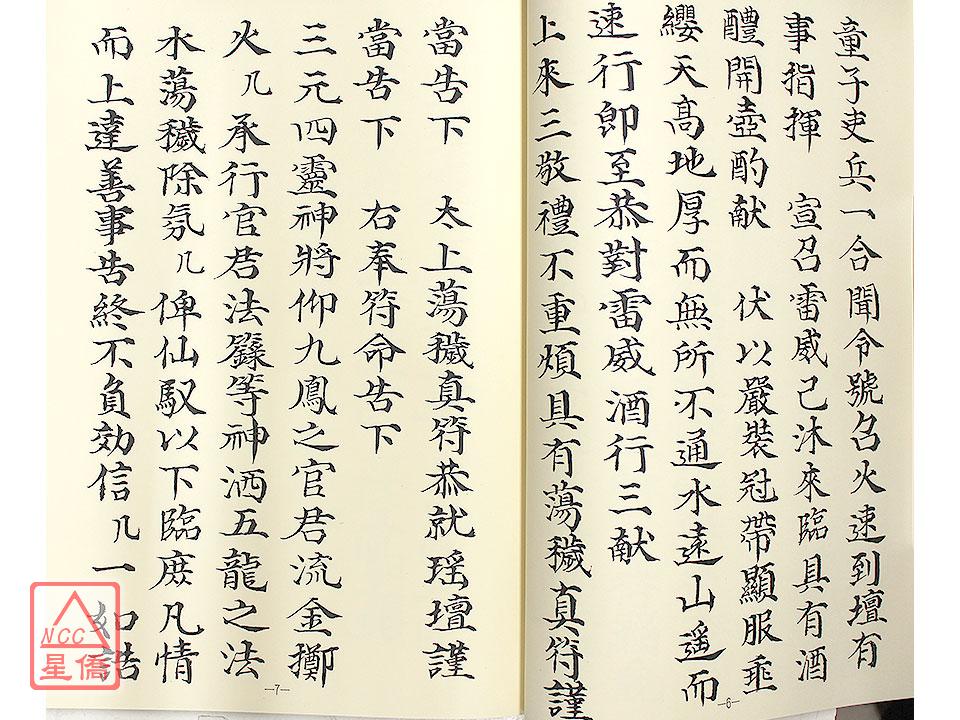 童子吏兵一合聞令號召火速到壇有
事指揮　宣召雷威已沐來臨具有酒
醴開壺酌献　伏以嚴裝冠帶顯服垂
纓天高地厚而無所不通水遠山遥而
速行卽至恭對雷威酒行三献
上來三敬禮不重煩具有蕩穢真符謹
—6—
當告下　太上蕩穢真符恭就瑶壇謹
當告下　右奉符命告下
三元四靈神將仰九鳳之官君流金擲
火几承行官君法籙等神洒五龍之法
水蕩穢除氛几俾仙馭以下臨庶凡情
而上達善事告終不負効信几一如誥
—7—
NCC
星僑